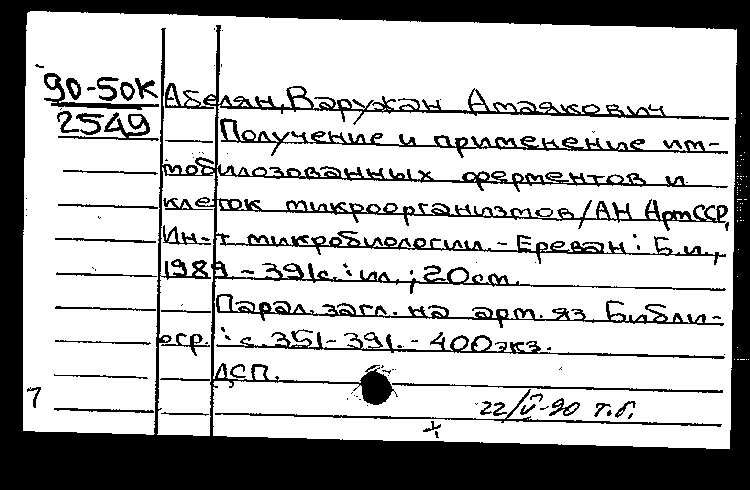 90-50К
2549
Абелян, Варужан Амаякович
Получение и применение им-
мобилозованных ферментов и
клеток микроорганизмов/АН АрмССР,
Ин-т микробилологии. - Ереван: Б.и.,
1989 - 391с.: ил.; 20см.
Парал. загл. на арм. яз. Библи-
огр.: с. 351-391. - 400экз.
ДСП.
7
22/V-90 т.г.
+